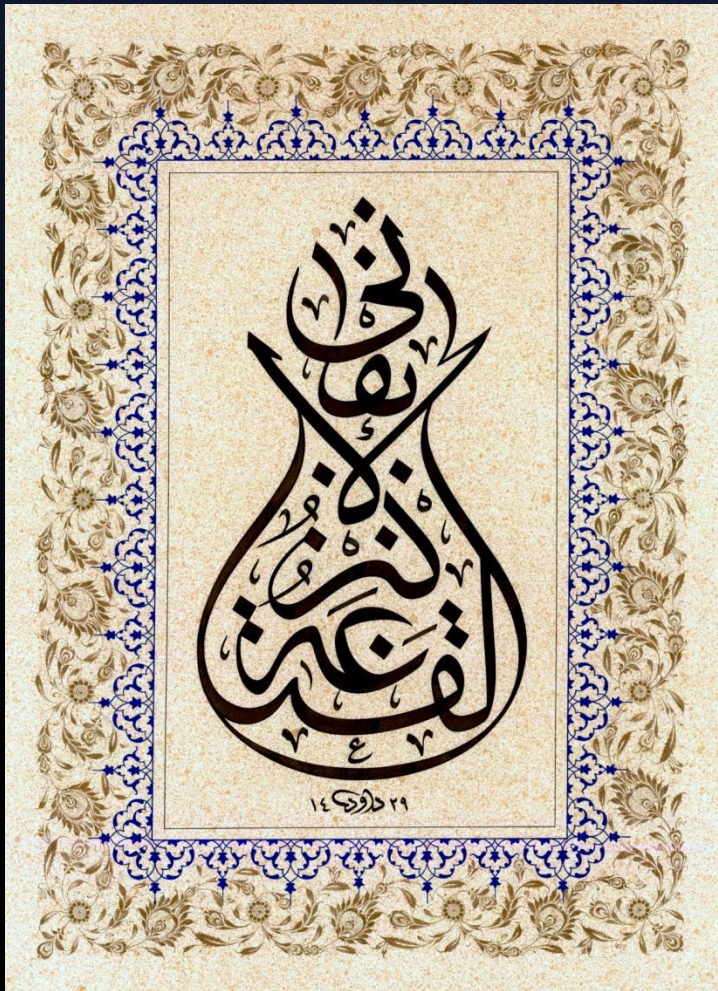 القناعة كنز لا يفنى
١٤ داود ٢٩